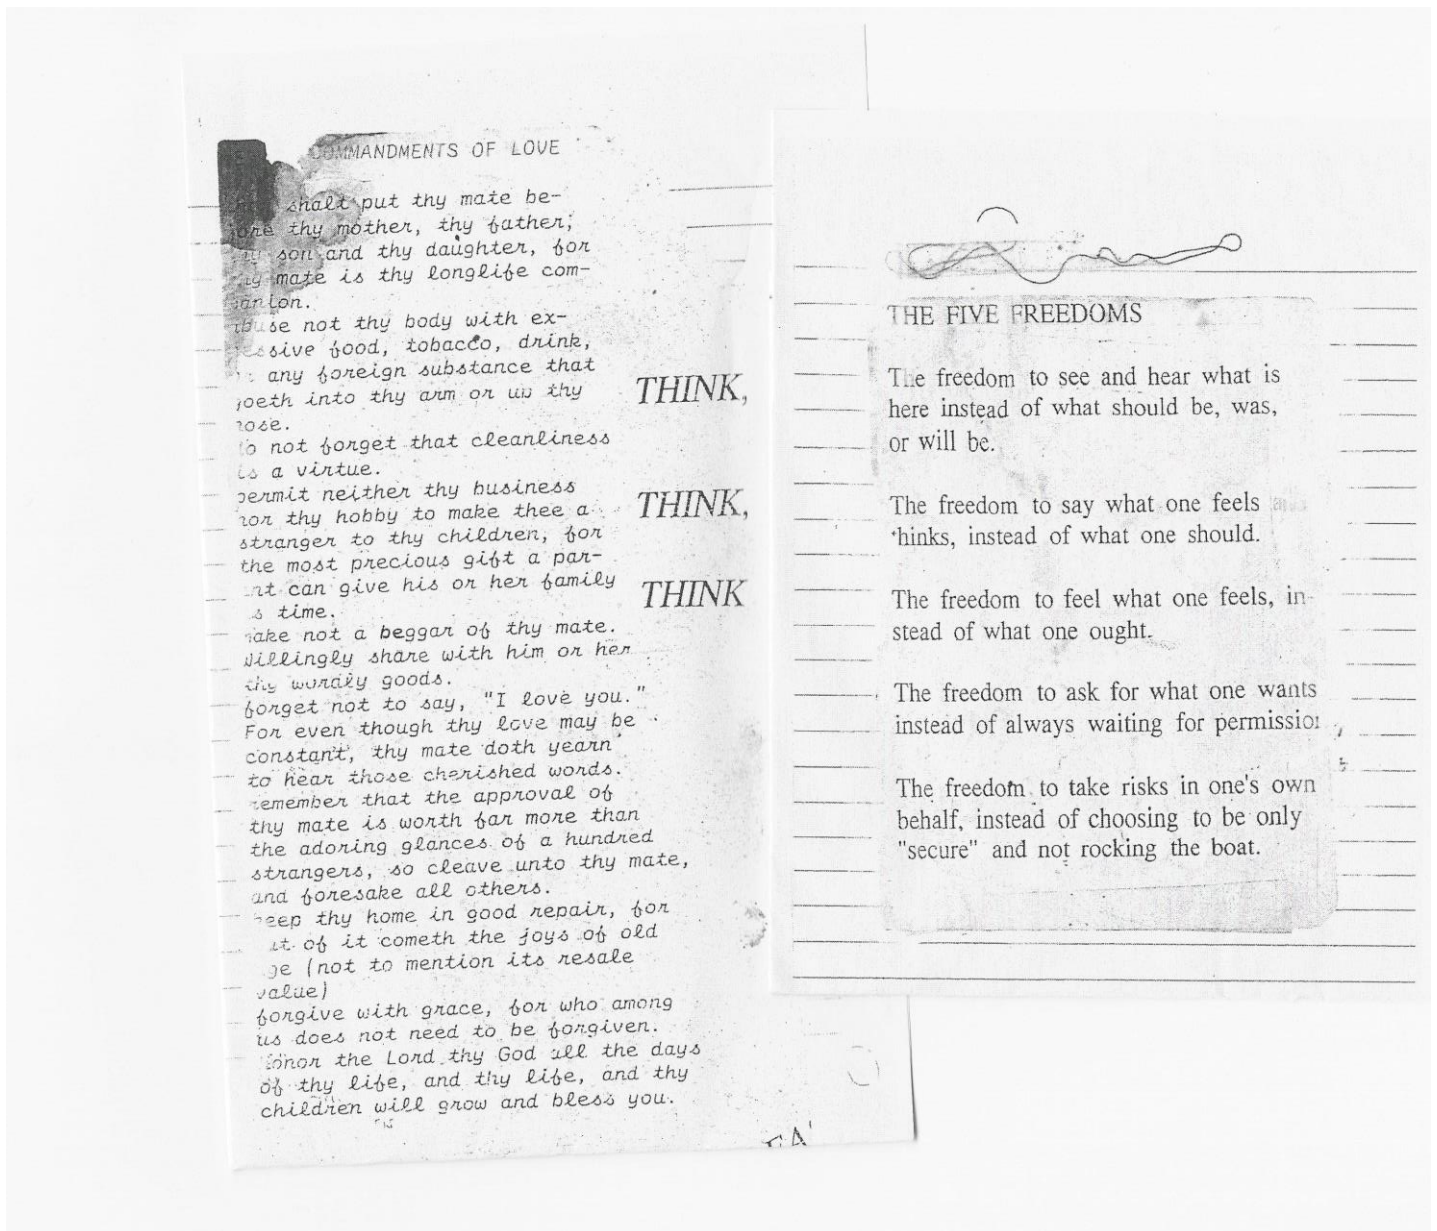 COMMANDMENTS OF LOVE
shalt put thy mate be-
thy mother, thy father,
son and thy daughter, for
mate is thy longlife com-
panion.
Abuse not thy body with ex-
cessive food, tobacco, drink,
any foreign substance that
goeth into thy arm or up thy
nose.
Do not forget that cleanliness
is a virtue.
permit neither thy business
nor thy hobby to make thee a
stranger to thy children, for
the most precious gift a par-
ent can give his or her family
is time.
make not a beggar of thy mate.
Willingly share with him or her
thy wordly goods.
forget not to say, "I love you."
For even though thy love may be
constant, thy mate doth yearn
to hear those cherished words.
remember that the approval of
thy mate is worth far more than
the adoring glances of a hundred
strangers, so cleave unto thy mate,
and foresake all others.
keep thy home in good repair, for
out of it cometh the joys of old
age (not to mention its resale
value)
forgive with grace, for who among
us does not need to be forgiven.
Honor the Lord thy God all the days
of thy life, and thy life, and thy
children will grow and bless you.
THINK,
THINK,
THINK
THE FIVE FREEDOMS
The freedom to see and hear what is
here instead of what should be, was,
or will be.
The freedom to say what one feels and
thinks, instead of what one should.
The freedom to feel what one feels, in-
stead of what one ought.
The freedom to ask for what one wants
instead of always waiting for permission
The freedom to take risks in one's own
behalf, instead of choosing to be only
"secure" and not rocking the boat.